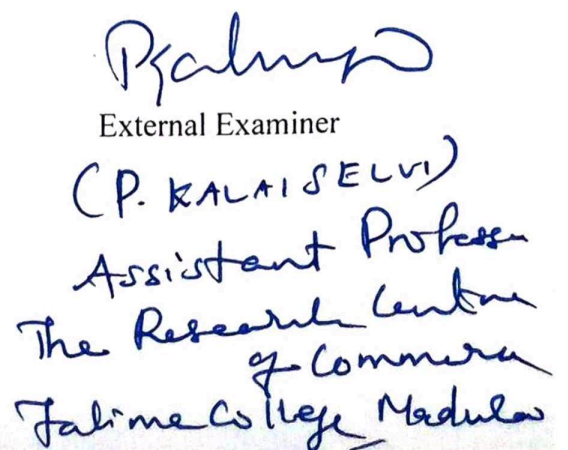 External Examiner
(P. KALAISELVI)
Assistant Professor
The Research Centre
of Commerce
Fatima College Madurai